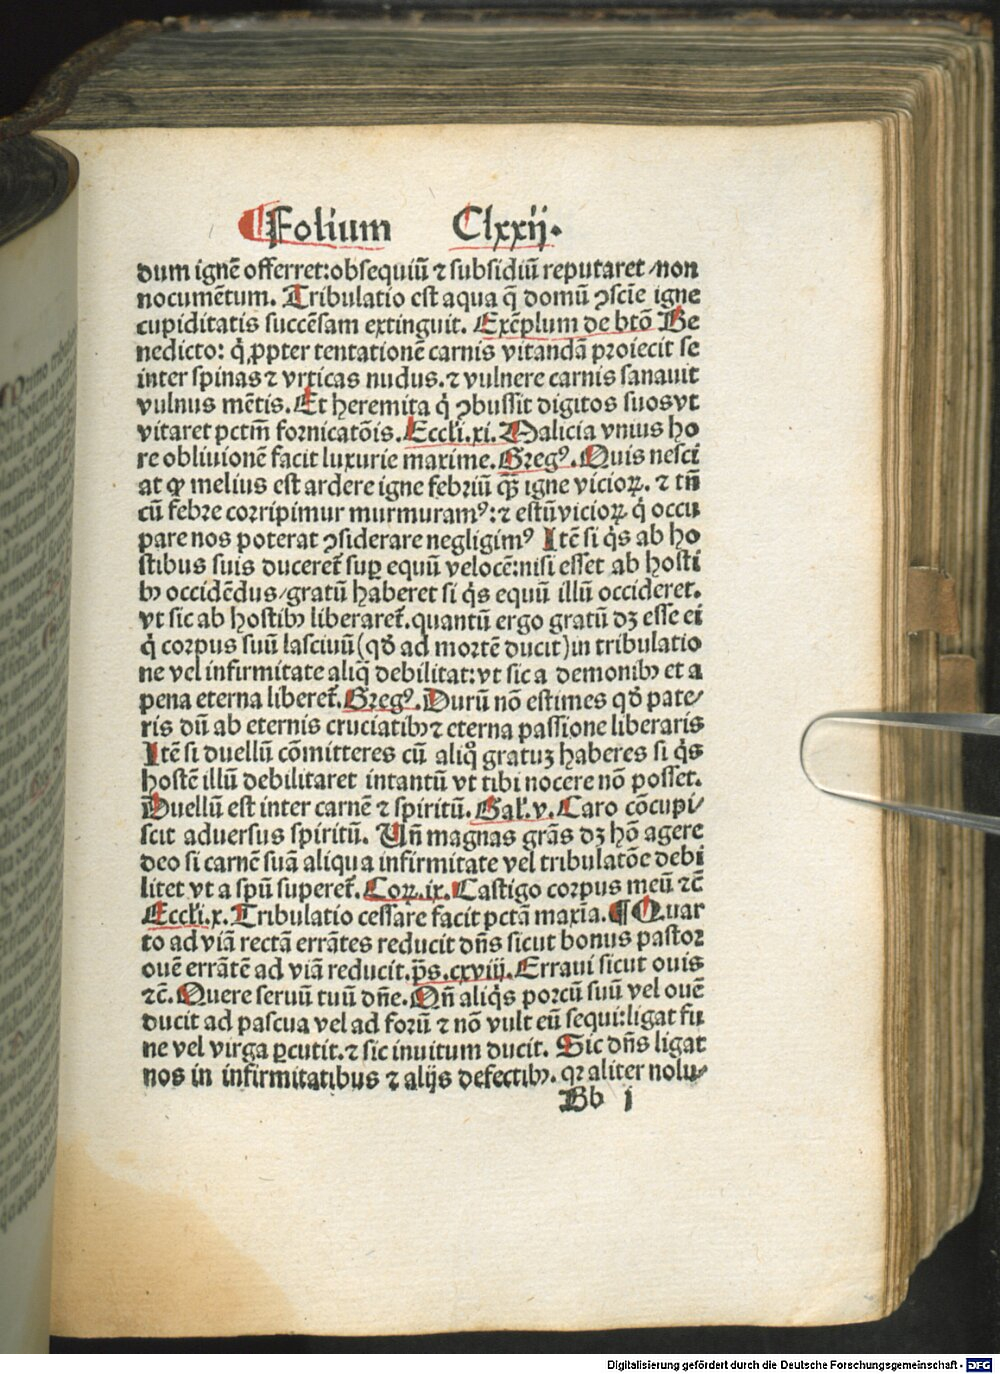 Folium Clxxij.
dum ignē offerret:obsequiū ⁊ subsidiū reputaret/non
nocumētum. Tribulatio est aqua q̄ domū ꝯscīe igne
cupiditatis succēsam extinguit. Exēplum de btō Be
nedicto: q̇ ꝓpter tentationē carnis vitandā proiecit se
inter spinas ⁊ vrticas nudus.⁊ vulnere carnis sanauit
vulnus mētis. Et heremita q̇ ꝯbussit digitos suos vt
vitaret pctm̄ fornicatōis. Eccłi.xi. Malicia vnius ho
re obliuionē facit luxurie maxime. Gregꝰ. Quis nesci
at ꝙ melius est ardere igne febriū qȝ̄ igne vicioꝝ. ⁊ tn̄
cū febre corripimur murmuramꝰ:⁊ estū vicioꝝ q̇ occu
pare nos poterat ꝯsiderare negligimꝰ Itē si q̇s ab ho
stibus suis duceret̄ suꝑ equū velocē:nisi esset ab hosti
bꝫ occidēdus/gratū haberet si q̇s equū illū occideret.
vt sic ab hostibꝫ liberaret̄.quantū ergo gratū dꝫ esse ei
q̇ corpus suū lasciuū(qd̄ ad mortē ducit)in tribulatio
ne vel infirmitate aliq̄ debilitat:vt sic a demonibꝫ et a
pena eterna liberet̄. Gregꝰ. Durū nō estimes qd̄ pate/
ris dū ab eternis cruciatibꝫ ⁊ eterna passione liberaris
Itē si duellū cōmitteres cū aliq̊ gratuꝫ haberes si q̇s
hostē illū debilitaret intantū vt tibi nocere nō posset.
Duellū est inter carnē ⁊ spiritū. Gał.v. Caro cōcupi/
scit aduersus spiritū. Un̄ magnas grās dꝫ hō agere
deo si carnē suā aliqua infirmitate vel tribulatōe debi
litet vt a spū superet̄. Coꝝ.ix. Castigo corpus meū ⁊c̄
Eccłi.x. Tribulatio cessare facit pctā maxīa. ¶ Quar
to ad viā rectā errātes reducit dn̄s sicut bonus pastor
ouē errātē ad viā reducit.p̄s.cxviij. Erraui sicut ouis
⁊c̄. Quere seruū tuū dn̄e. Qn̄ aliq̇s porcū suū vel ouē
ducit ad pascua vel ad forū ⁊ nō vult eū sequi:ligat fu
ne vel virga ꝑcutit.⁊ sic inuitum ducit. Sic dn̄s ligat
nos in infirmitatibus ⁊ alijs defectibꝫ. qꝛ aliter nolu/
Bb j
Digitalisierung gefördert durch die Deutsche Forschungsgemeinschaft - DFG